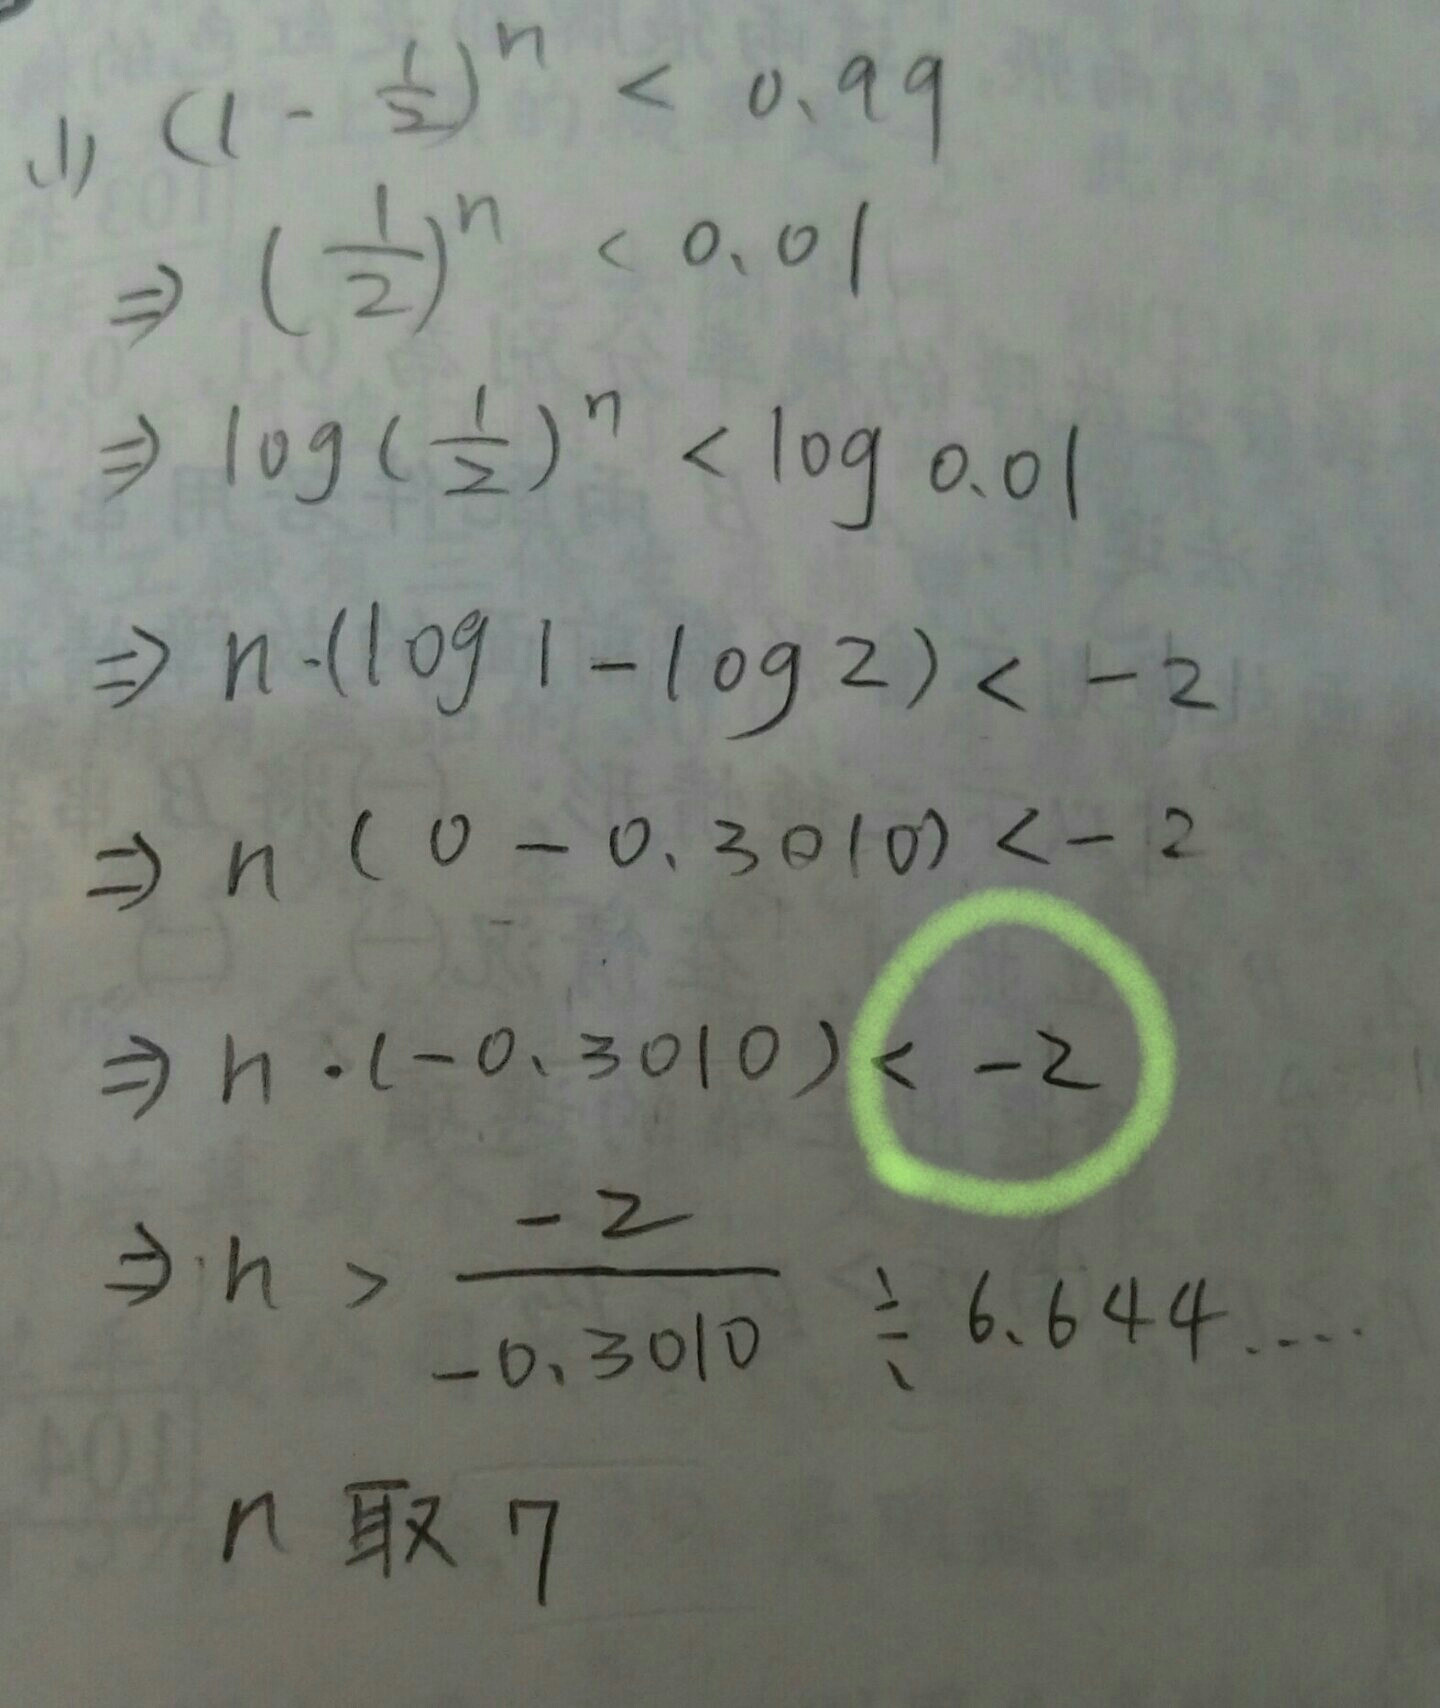 (1) (1 - 1/2)^n < 0.99
⇒ (1/2)^n < 0.01
⇒ log(1/2)^n < log 0.01
⇒ n·(log 1 - log 2) < -2
⇒ n (0 - 0.3010) < -2
⇒ n·(-0.3010) < -2
⇒ n > -2/-0.3010 ≒ 6.644....
n 取 7